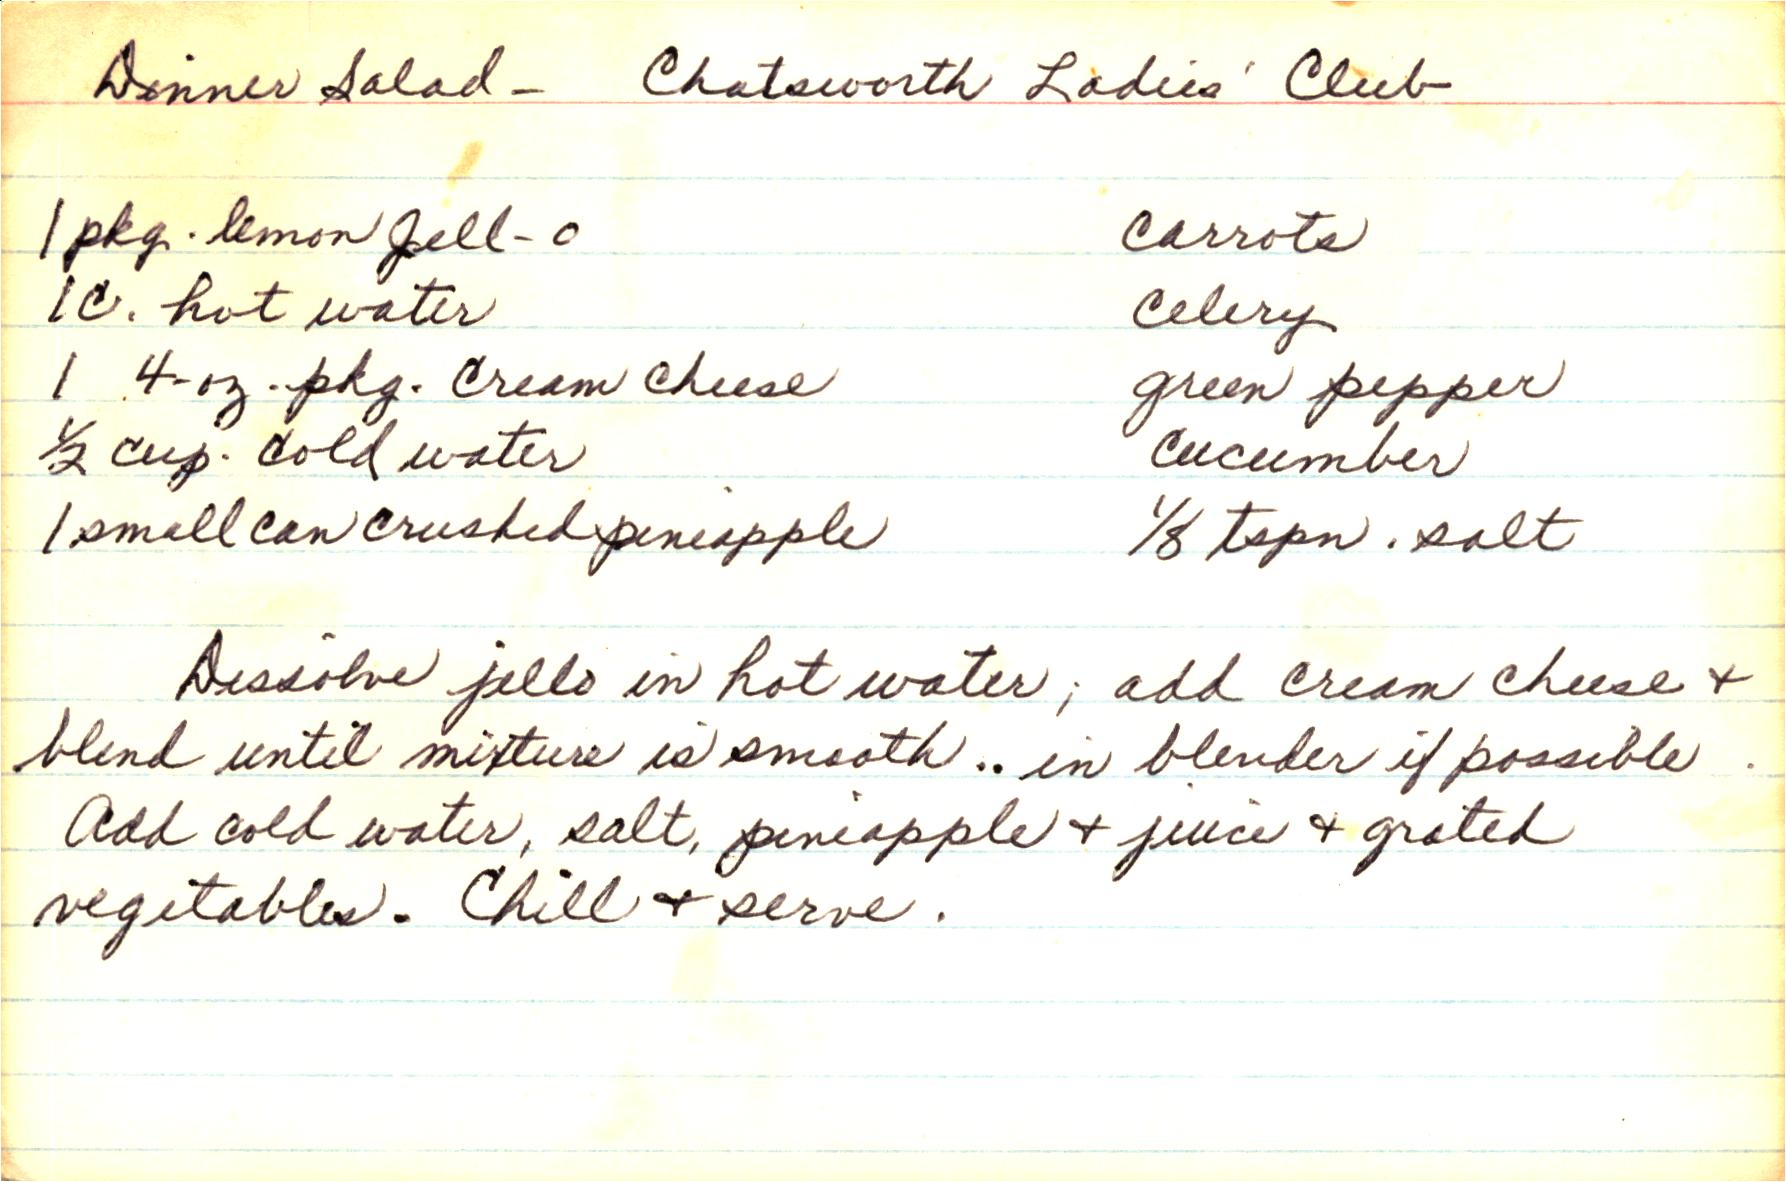 Dinner Salad - Chatsworth Ladies' Club
1 pkg. lemon Jell-o
1 C. hot water
1 4-oz. pkg. cream cheese
1/2 cup. cold water
1 small can crushed pineapple
carrots
celery
green pepper
cucumber
1/8 tspn. salt
Dissolve jello in hot water; add cream cheese +
blend until mixture is smooth.. in blender if possible.
Add cold water, salt, pineapple + juice + grated
vegetables. Chill + serve.